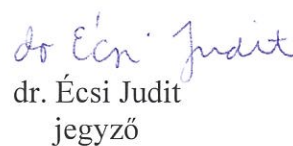 dr Écsi Judit
dr. Écsi Judit
jegyző